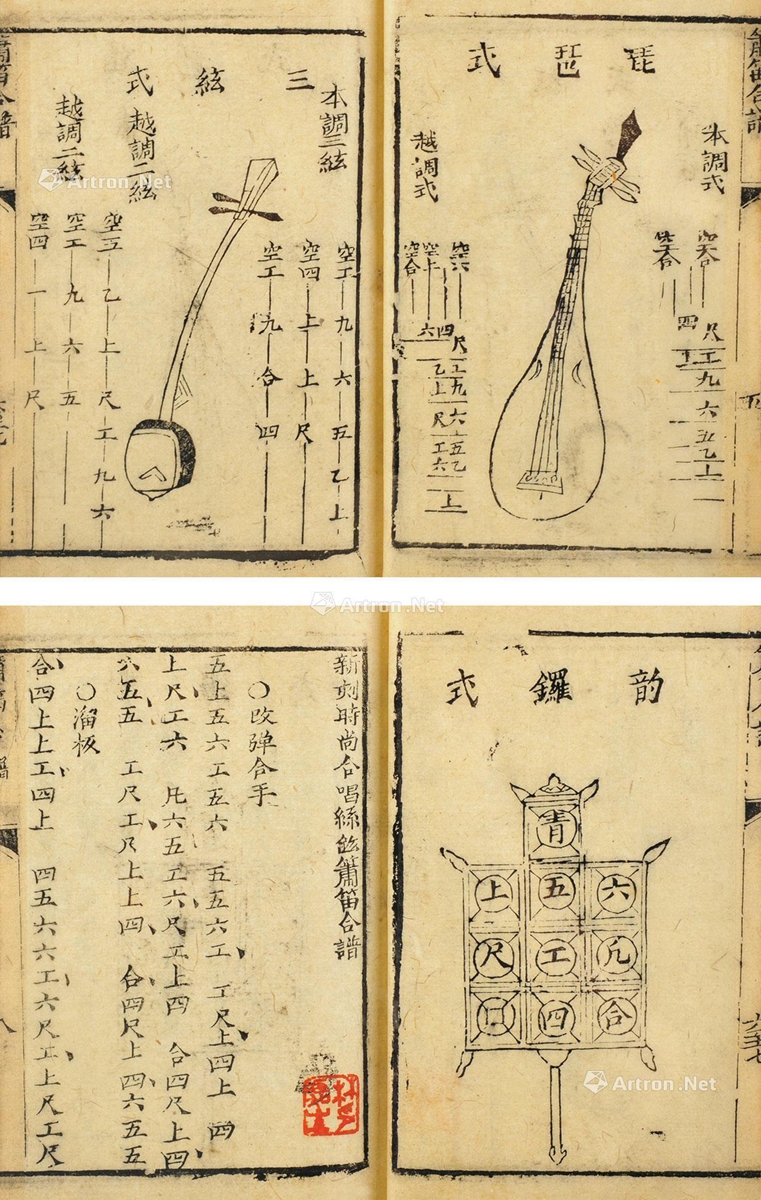 琵琶式
本調式
越調式
尺
四工
九
六
五
乙
上
三絃式
本調三絃
空工九六五乙上
空四上上尺
空工九合四
越調二絃
空五乙上尺工九六
越調二絃
空工九六五
空四一上尺
Artron.Net
Artron.Net
韵鑼式
青
上五六
尺工凡
四合
新刻時尚合唱絲絃簫笛合譜
○改弹合手
五上五六工五六 五五六工 工尺上四上 四
上尺工六 凡六五工六尺工上四 合四尺上四
六五五 工尺工尺上上四 合四尺上四六五五
○溜板
合四上上工四上 四五六六工六尺工上尺工尺
Artron.Net